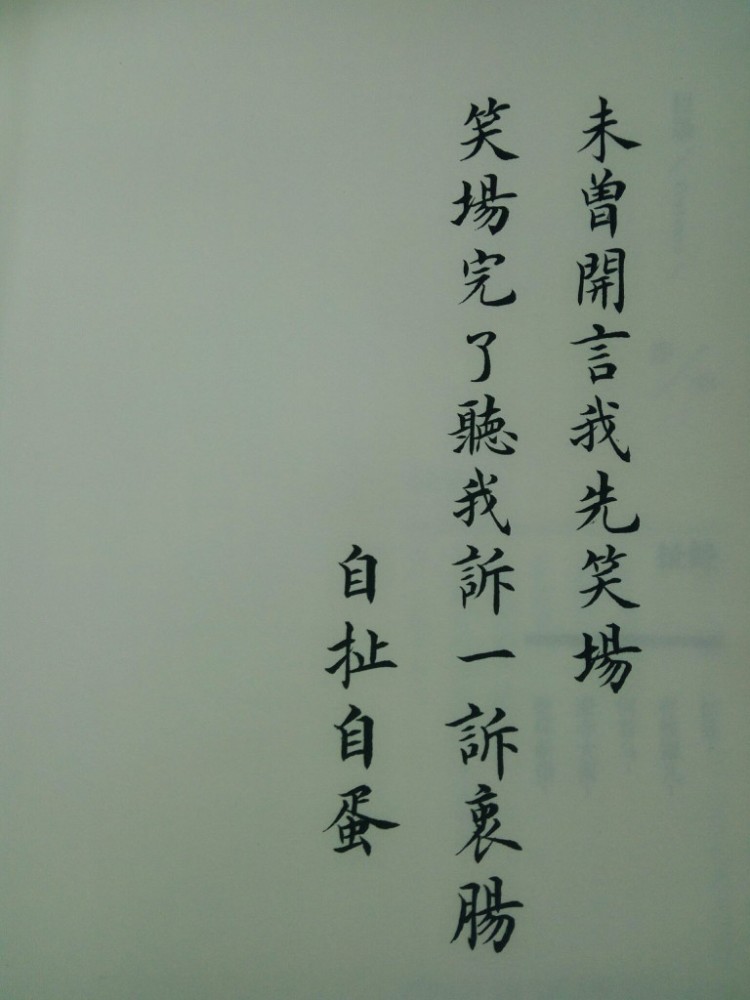 未曾開言我先笑場
笑場完了聽我訴一訴衷腸
自扯自蛋